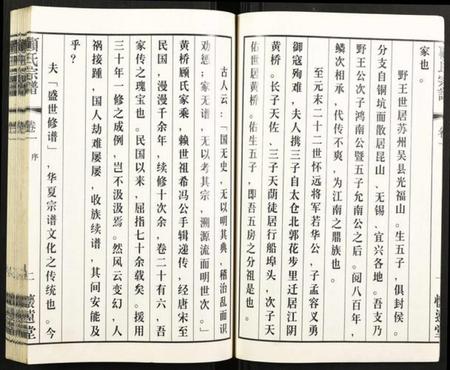 家也。
野王世居苏州吴县光福山。生五子，俱封侯。
分支自铜坑而散居昆山、无锡、宜兴各地。吾支乃
野王公次子鸿南公暨五子允南公之后。阅八百年，
鳞次相承，代传不爽，为江南之鼎族也。
至元末二十二世怀远将军若华公，子孟容义勇
御寇殉难，夫人携三子自太仓北郭花步里迁居江阴
黄桥。长子天佐、三子天荫徒居行船埠头，次子天
佑世居黄桥。佑生五子，即吾五房之分祖是也。
古人云：「国无史，无以明其典，稽治乱而识
劝惩；家无谱，无以考其宗，溯源流而明世次。」
黄桥顾氏家乘，赖世祖希冯公手辑递传，经唐宋至
民国，漫漫千余年，续修二十余次，卷二十有六，吾
家传之瑰宝也。民国以来，屈指七十余载矣。援用
三十年一修之成例，岂不汲汲焉。然风云变幻，人
祸接踵，国人劫难屡屡，收族续谱，其间安能及
乎？
夫「盛世修谱」，华夏宗谱文化之传统也。今
顧氏宗譜 卷一 序 懷遠堂